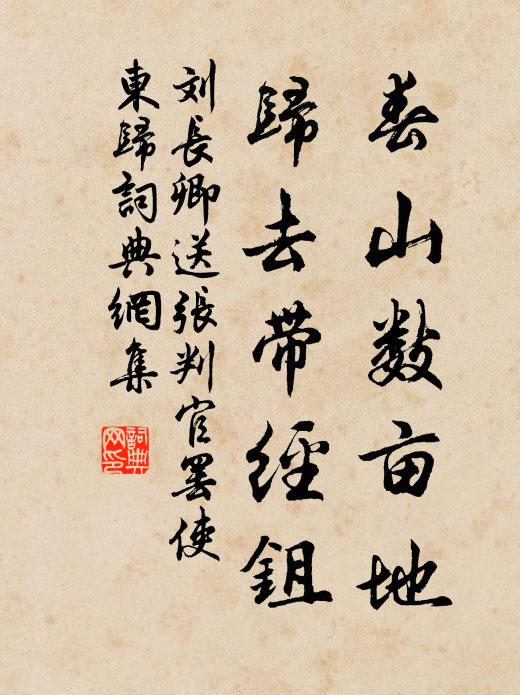 春山数亩地
歸去带經鉏
刘長卿送張判官罢使
東歸詞典網集
詞典网印